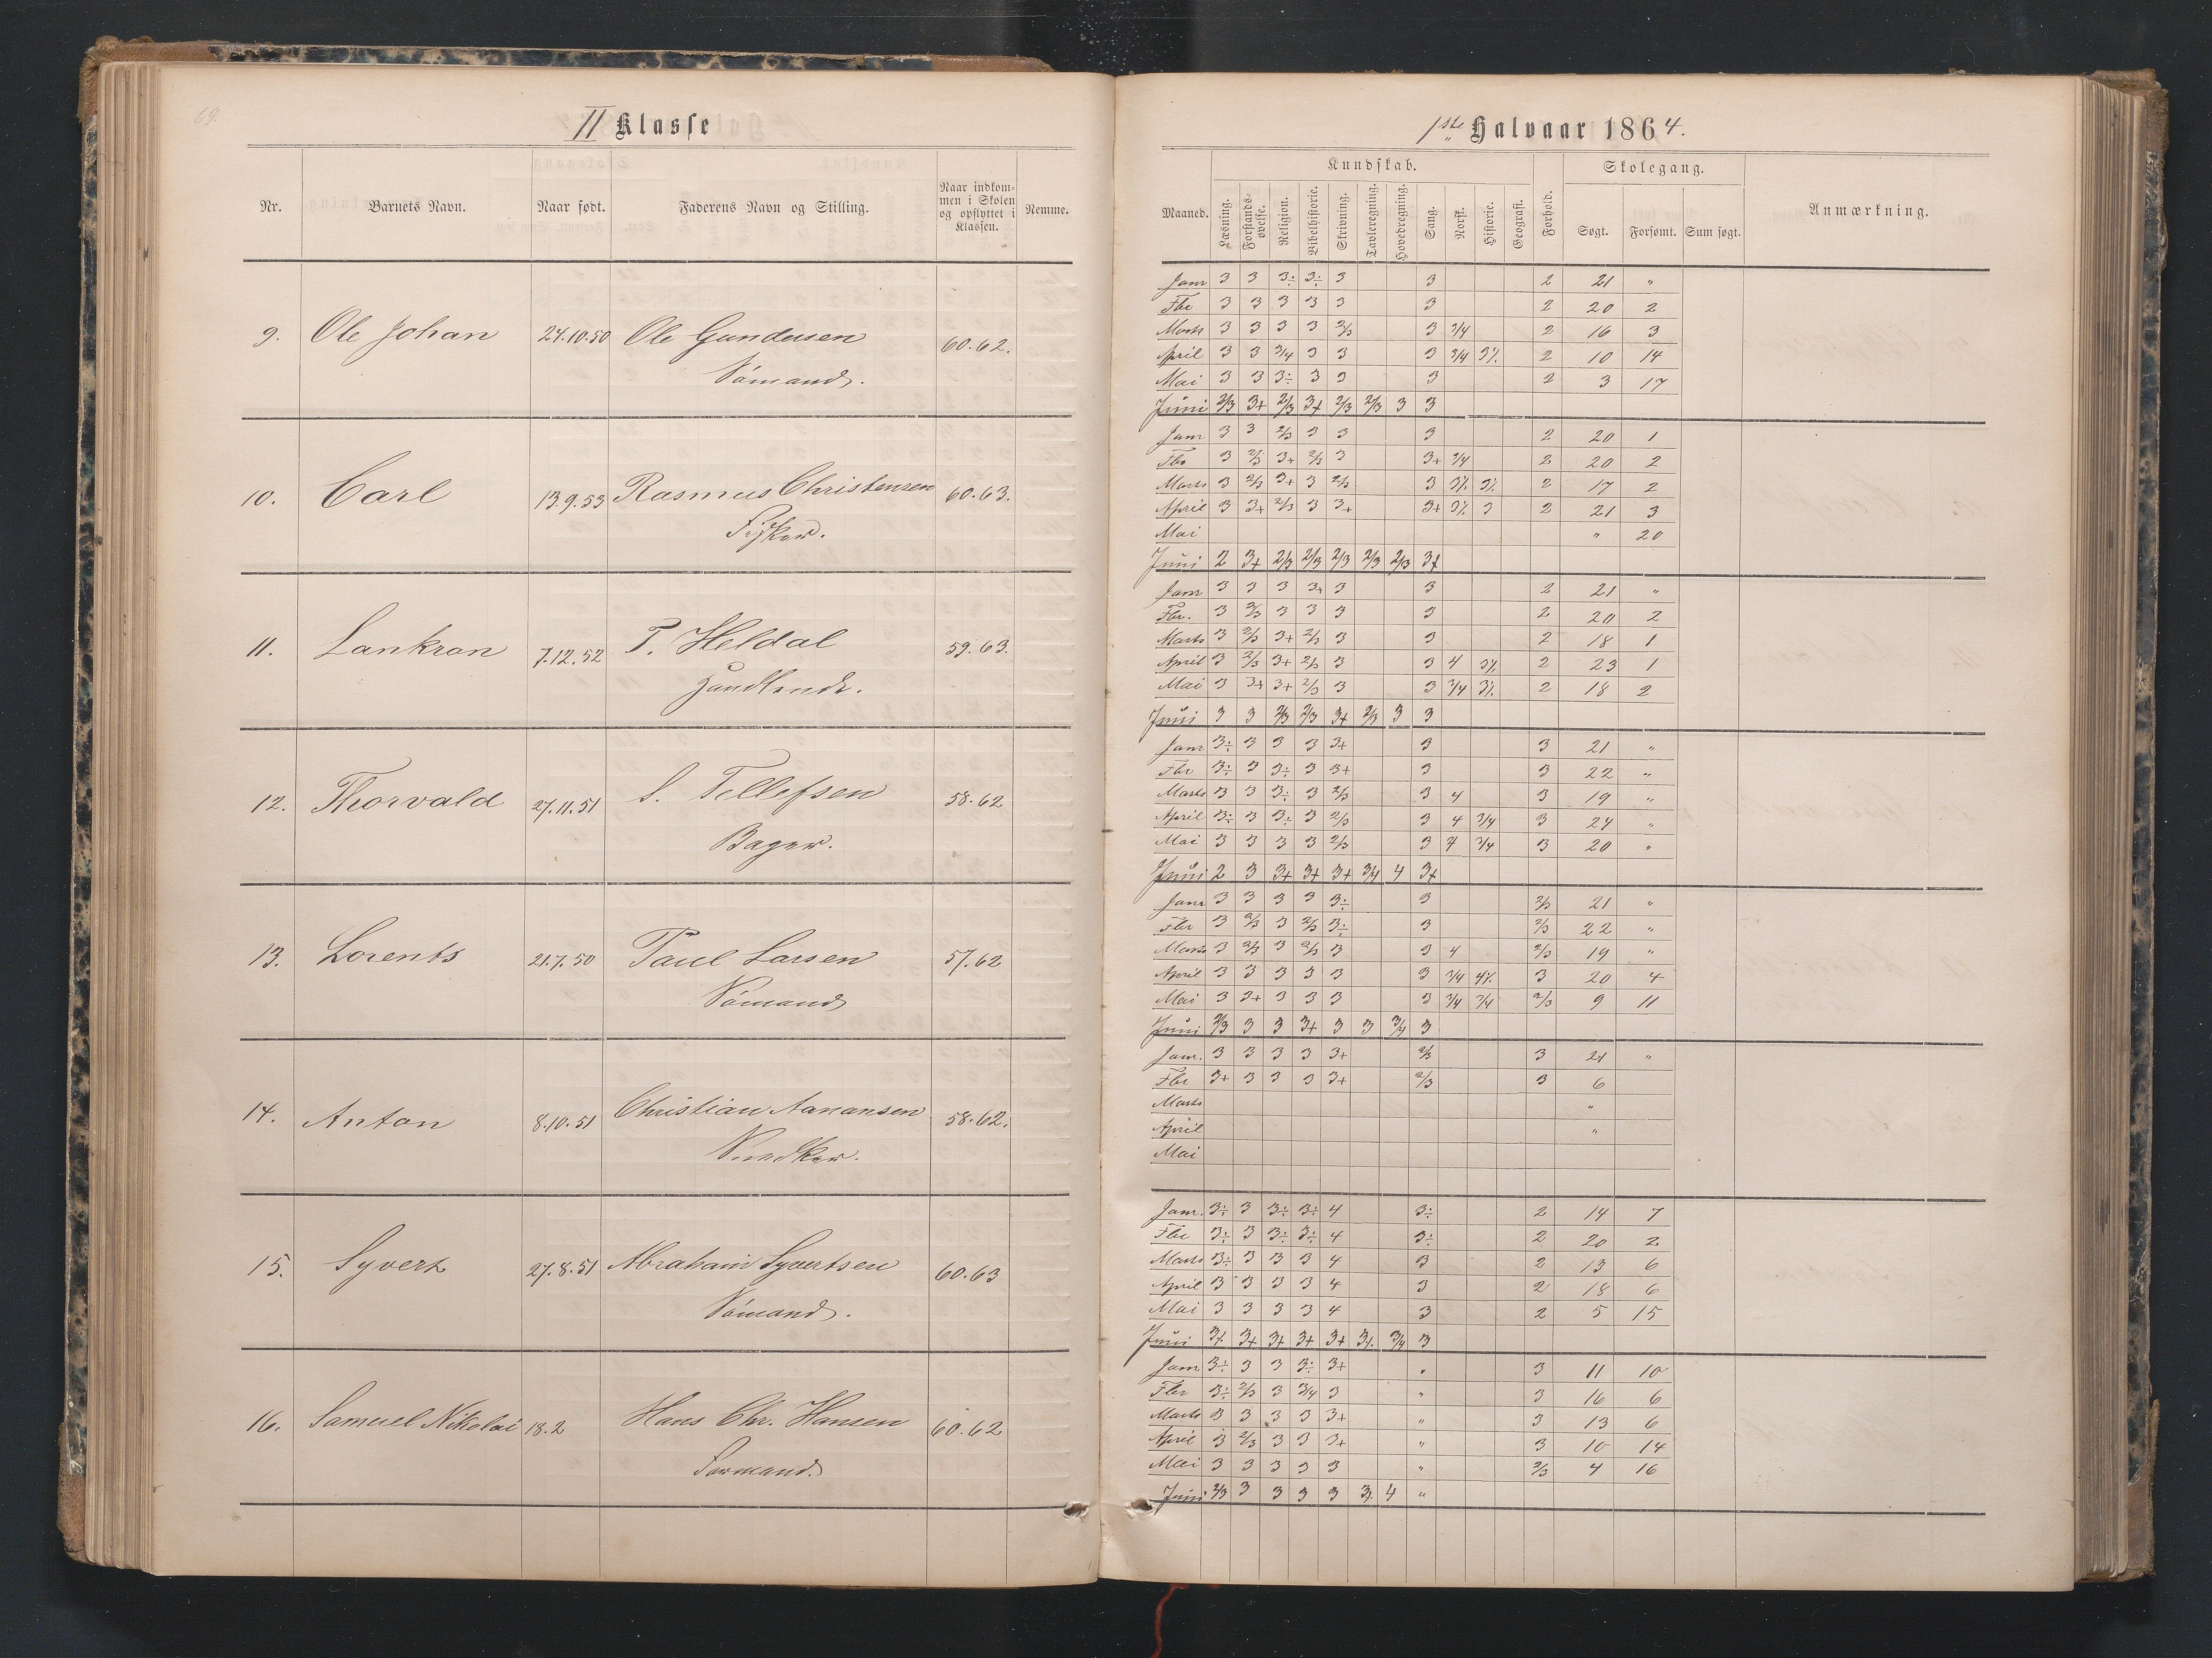 69.
II Klasse
Nr. Barnets Navn. Naar født. Faderens Navn og Stilling. Naar indkommen i Skolen og opflyttet i Klassen. Nemme.
9. Ole Johan 24.10.50 Ole Gundersen 60.62.
Sømand.
10. Carl 13.9.53 Rasmus Christensen 60.63.
Fisker.
11. Lankron 7.12.52 T. Heldal 59.63.
Handlende.
12. Thorvald 27.11.51 S. Tellefsen 58.62
Bager.
13. Lorents 21.7.50 Paul Larsen 57.62
Sømand
14. Anton 8.10.51 Christian Aanansen 58.62.
Snedker.
15. Syvert 27.8.51 Abraham Syvertsen 60.63
Sømand.
16. Samuel Nikolai 18.2 Hans Chr. Hansen 60.62
Formand.
1ste Halvaar 1864.
Kundskab. Skolegang.
Maaned. Læsning. Forstandsøvelse. Religion. Bibelhistorie. Skrivning. Tavleregning. Hovedregning. Sang. Norsk. Historie. Geografi. Forhold. Søgt. Forsømt. Sum søgt. Anmærkning.
Janr 3 3 3÷ 3÷ 3 3 2 21 "
Fbr 3 3 3 3 3 3 2 20 2
Marts 3 3 3 3 2/3 3 3/4 2 16 3
April 3 3 3/4 3 3 3 3/4 3% 2 10 14
Mai 3 3 3÷ 3 3 3 2 3 17
Juni 2/3 3+ 2/3 3+ 2/3 2/3 3 3
Janr 3 3 2/3 3 3 3 2 20 1
Fbr 3 2/3 3+ 2/3 3 3+ 3/4 2 20 2
Marts 3 2/3 3+ 3 2/3 3 3% 3% 2 17 2
April 3 3+ 2/3 3 3+ 3+ 3% 3 2 21 3
Mai " 20
Juni 2 3+ 2/3 2/3 2/3 2/3 2/3 3+
Janr 3 3 3 3+ 3 3 2 21 "
Fbr. 3 2/3 3 3 3 3 2 20 2
Marts 3 2/3 3+ 2/3 3 3 2 18 1
April 3 2/3 3+ 2/3 3 3 4 3% 2 23 1
Mai 3 3+ 3+ 2/3 3 3 3/4 3% 2 18 2
Juni 3 3 2/3 2/3 3+ 2/3 3 3
Janr 3÷ 3 3 3 3+ 3 3 21 "
Fbr 3÷ 3 3÷ 3 3+ 3 3 22 "
Marts 3 3 3÷ 3 2/3 3 4 3 19 "
April 3÷ 3 3÷ 3 2/3 3 4 3/4 3 24 "
Mai 3 3 3 3 2/3 3 4 3/4 3 20 "
Juni 2 3 3+ 3+ 3+ 3/4 4 3+
Janr 3 3 3 3 3÷ 3 2/3 21 "
Fbr 3 2/3 3 2/3 3÷ 3 2/3 22 "
Marts 3 2/3 3 2/3 3 3 4 2/3 19 "
April 3 3 3 3 3 3 3/4 4% 3 20 4
Mai 3 3+ 3 3 3 3 3/4 3/4 2/3 9 11
Juni 2/3 3 3 3+ 3 3 3/4 3
Janr. 3 3 3 3 3+ 2/3 3 21 "
Fbr 3+ 3 3 3 3+ 2/3 3 6
Marts "
April "
Mai
Janr. 3÷ 3 3÷ 3÷ 4 3÷ 2 14 7
Fbr 3÷ 3 3÷ 3÷ 4 3÷ 2 20 2
Marts 3÷ 3 3 3 4 3 2 13 6
April 3 3 3 3 4 3 2 18 6
Mai 3 3 3 3 4 3 2 5 15
Juni 3+ 3+ 3+ 3+ 3+ 3+ 3/4 3
Janr 3÷ 3 3 3÷ 3+ " 3 11 10
Fbr 3÷ 2/3 3 3/4 3 " 3 16 6
Marts 3 3 3 3 3+ " 3 13 6
April 3 2/3 3 3 3+ " 3 10 14
Mai 3 3 3 3 3 " 2/3 4 16
Juni 2/3 3 3 3 3 3+ 4 "